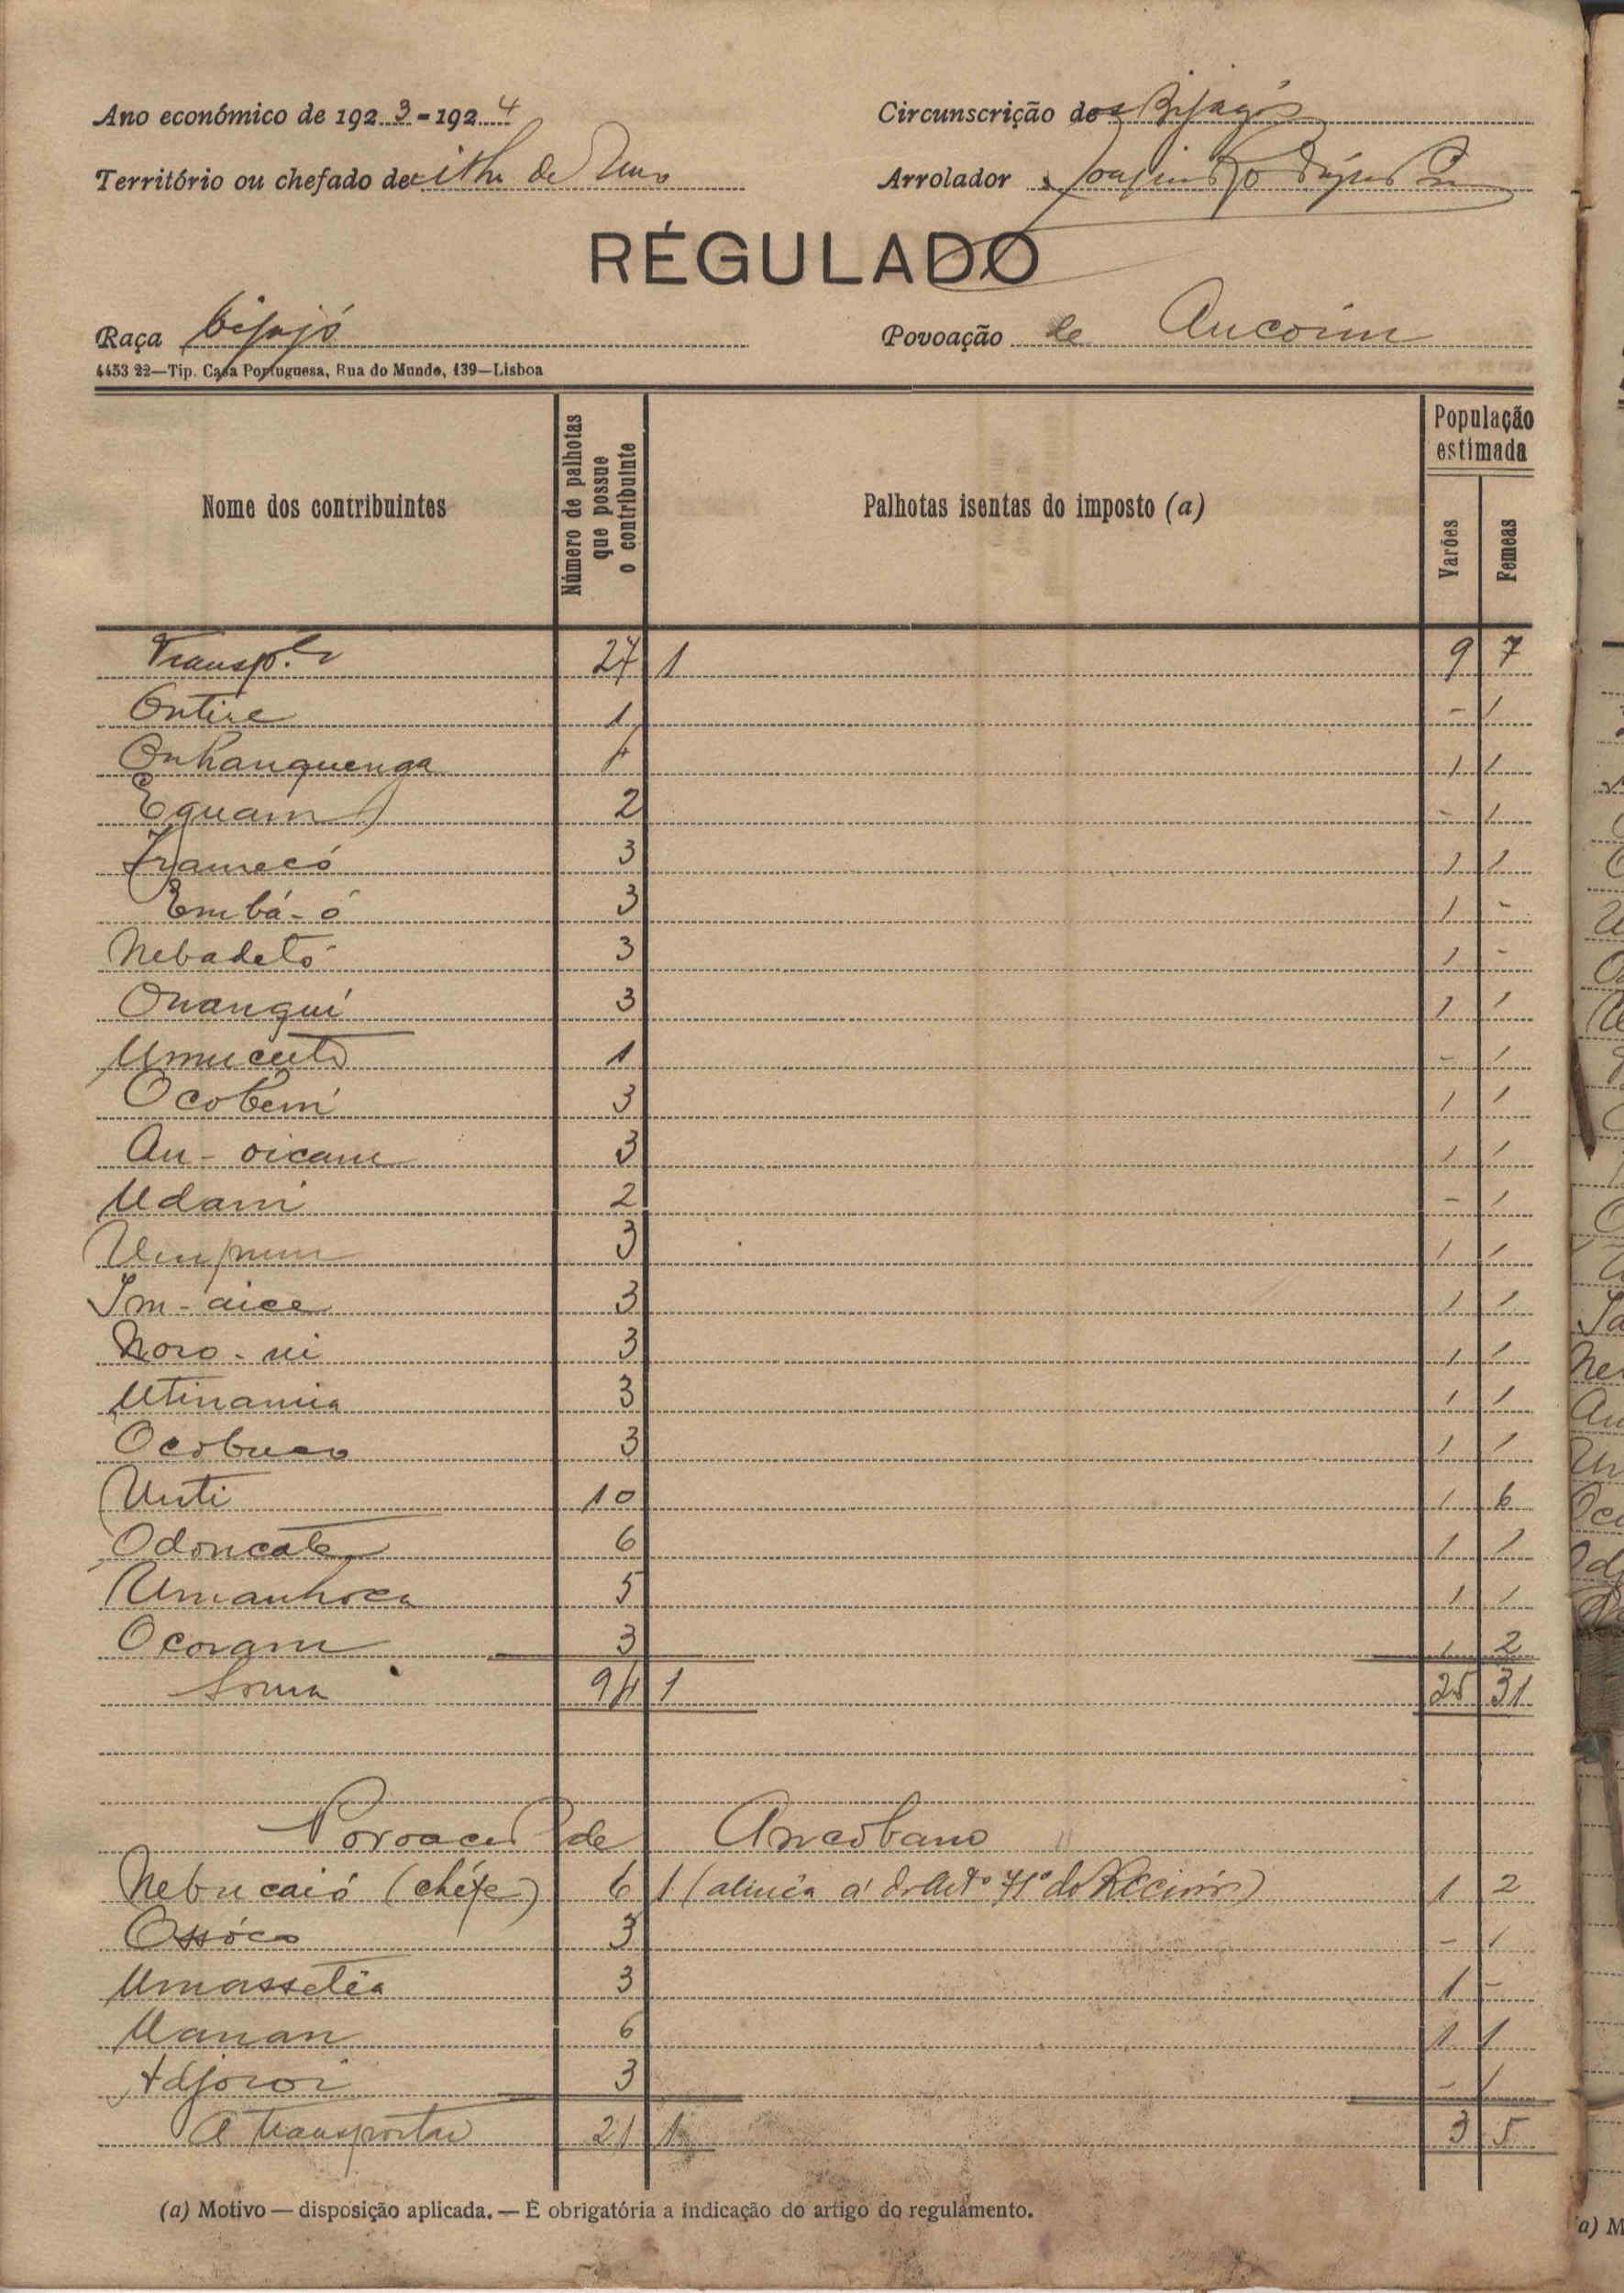 Ano económico de 1923-1924
Circunscrição dos Bijagós
Território ou chefado de ilha de Uno
Arrolador Joaquim
RÉGULADO
Raça bijajó
Povoação de Ancoim
4453 22—Tip. Casa Portuguesa, Rua do Mundo, 139—Lisboa
Nome dos contribuintes
Número de palhotas que possue o contribuinte
Palhotas isentas do imposto (a)
População estimada
Varões
Femeas
Transp.te 27 1 9 7
Ontire 1 - 1
Onhanquenga 4 1 1
Eguam 2 - 1
3 1 1
Embá-ó 3 1 -
Nebadetó 3 1 -
Onanqui 3 1 1
Umucuto 1 - 1
Ocobém 3 1 1
An-oicam 3 1 1
Udani 2 - 1
3 1 1
Im-aice 3 1 1
Noro-ni 3 1 1
Utinamia 3 1 1
Ocobuco 3 1 1
Unti 10 1 6
Odoncate 6 1 1
Umanhoca 5 1 1
Ocoram 3 1 2
Soma 94 1 25 31
Povoação de Ancobano
Nebucaió (chéfe) 6 1 (alinea a' do Artº 71º do 1 2
Ossóco 3 - 1
Umassetéa 3 1 -
Uanan 6 1 1
Adjoroi 3 - 1
A transportar 21 1 3 5
(a) Motivo — disposição aplicada. — É obrigatória a indicação do artigo do regulamento.